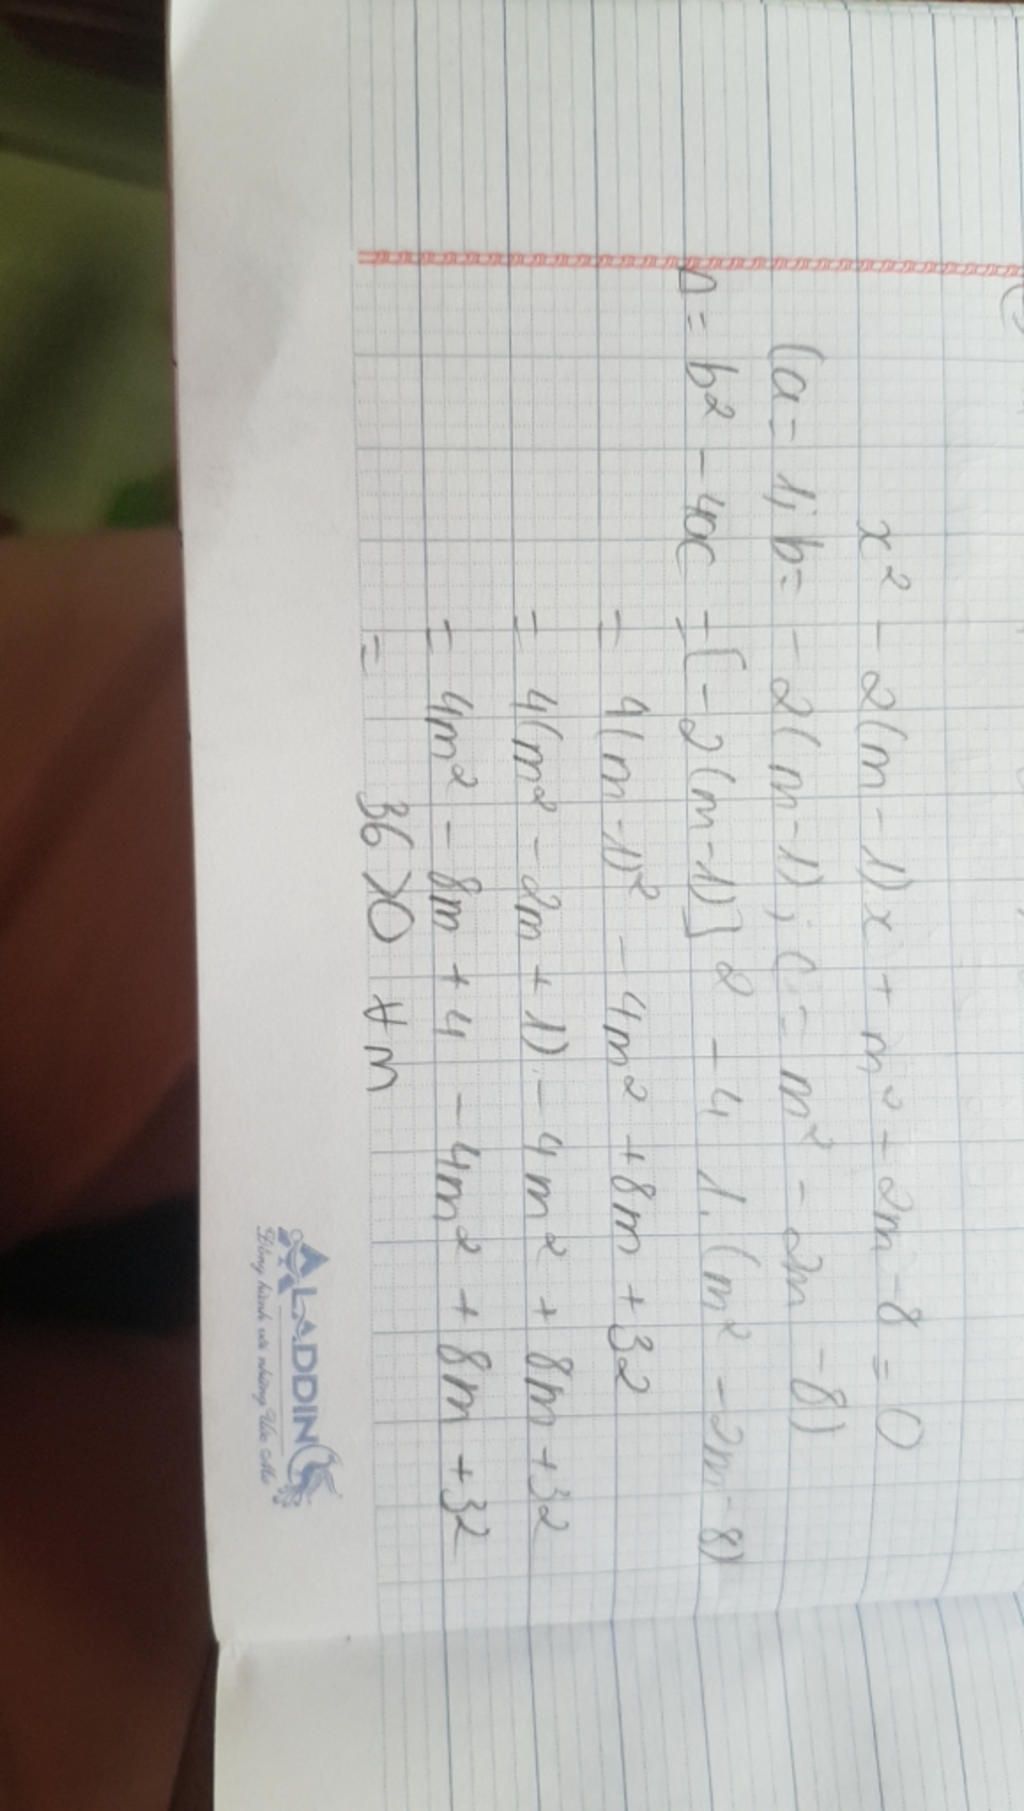 x² - 2(m - 1)x + m² - 2m - 8 = 0
(a = 1; b = - 2(m - 1); c = m² - 2m - 8)
Δ = b² - 4ac = [- 2(m - 1)]² - 4 1. (m² - 2m - 8)
= 4(m - 1)² - 4m² + 8m + 32
= 4(m² - 2m + 1) - 4m² + 8m + 32
= 4m² - 8m + 4 - 4m² + 8m + 32
= 36 > 0 ∀ m
ALADDIN